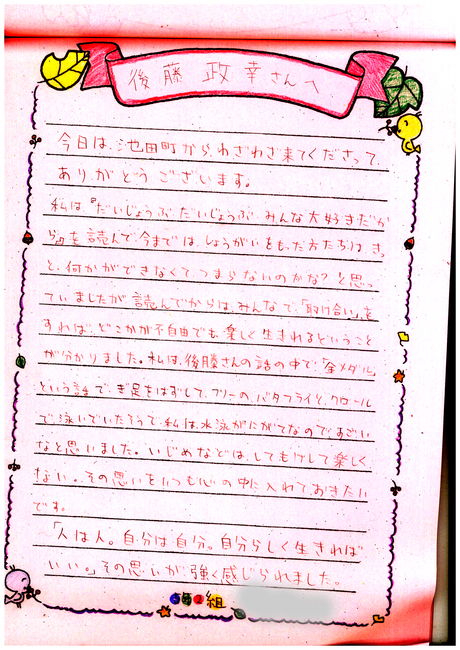 後藤政幸さんへ
今日は、池田町から、わざわざ来てくださって、
ありがとうございます。
私は『だいじょうぶ だいじょうぶ みんな大好きだか
ら』を読んで、今までは、しょうがいをもった方たちは、きっ
と、何かができなくて、つまらないのかな？と思っ
ていましたが読んでからは、みんなで、「助け合い」を
すれば、どこかが不自由でも、楽しく生きれるということ
が分かりました。私は、後藤さんの話の中で、「金メダル」
という話で、ぎ足をはずして、フリーの、バタフライと、クロール
で、泳いでいたそうで、私は、水泳がにがてなので、すごい
なと思いました。いじめなどは、してもけして楽しく
ない。その思いをいつも心の中に入れておきたい
です。
「人は人。自分は自分。自分らしく生きれば
いい。」その思いが、強く感じられました。
組